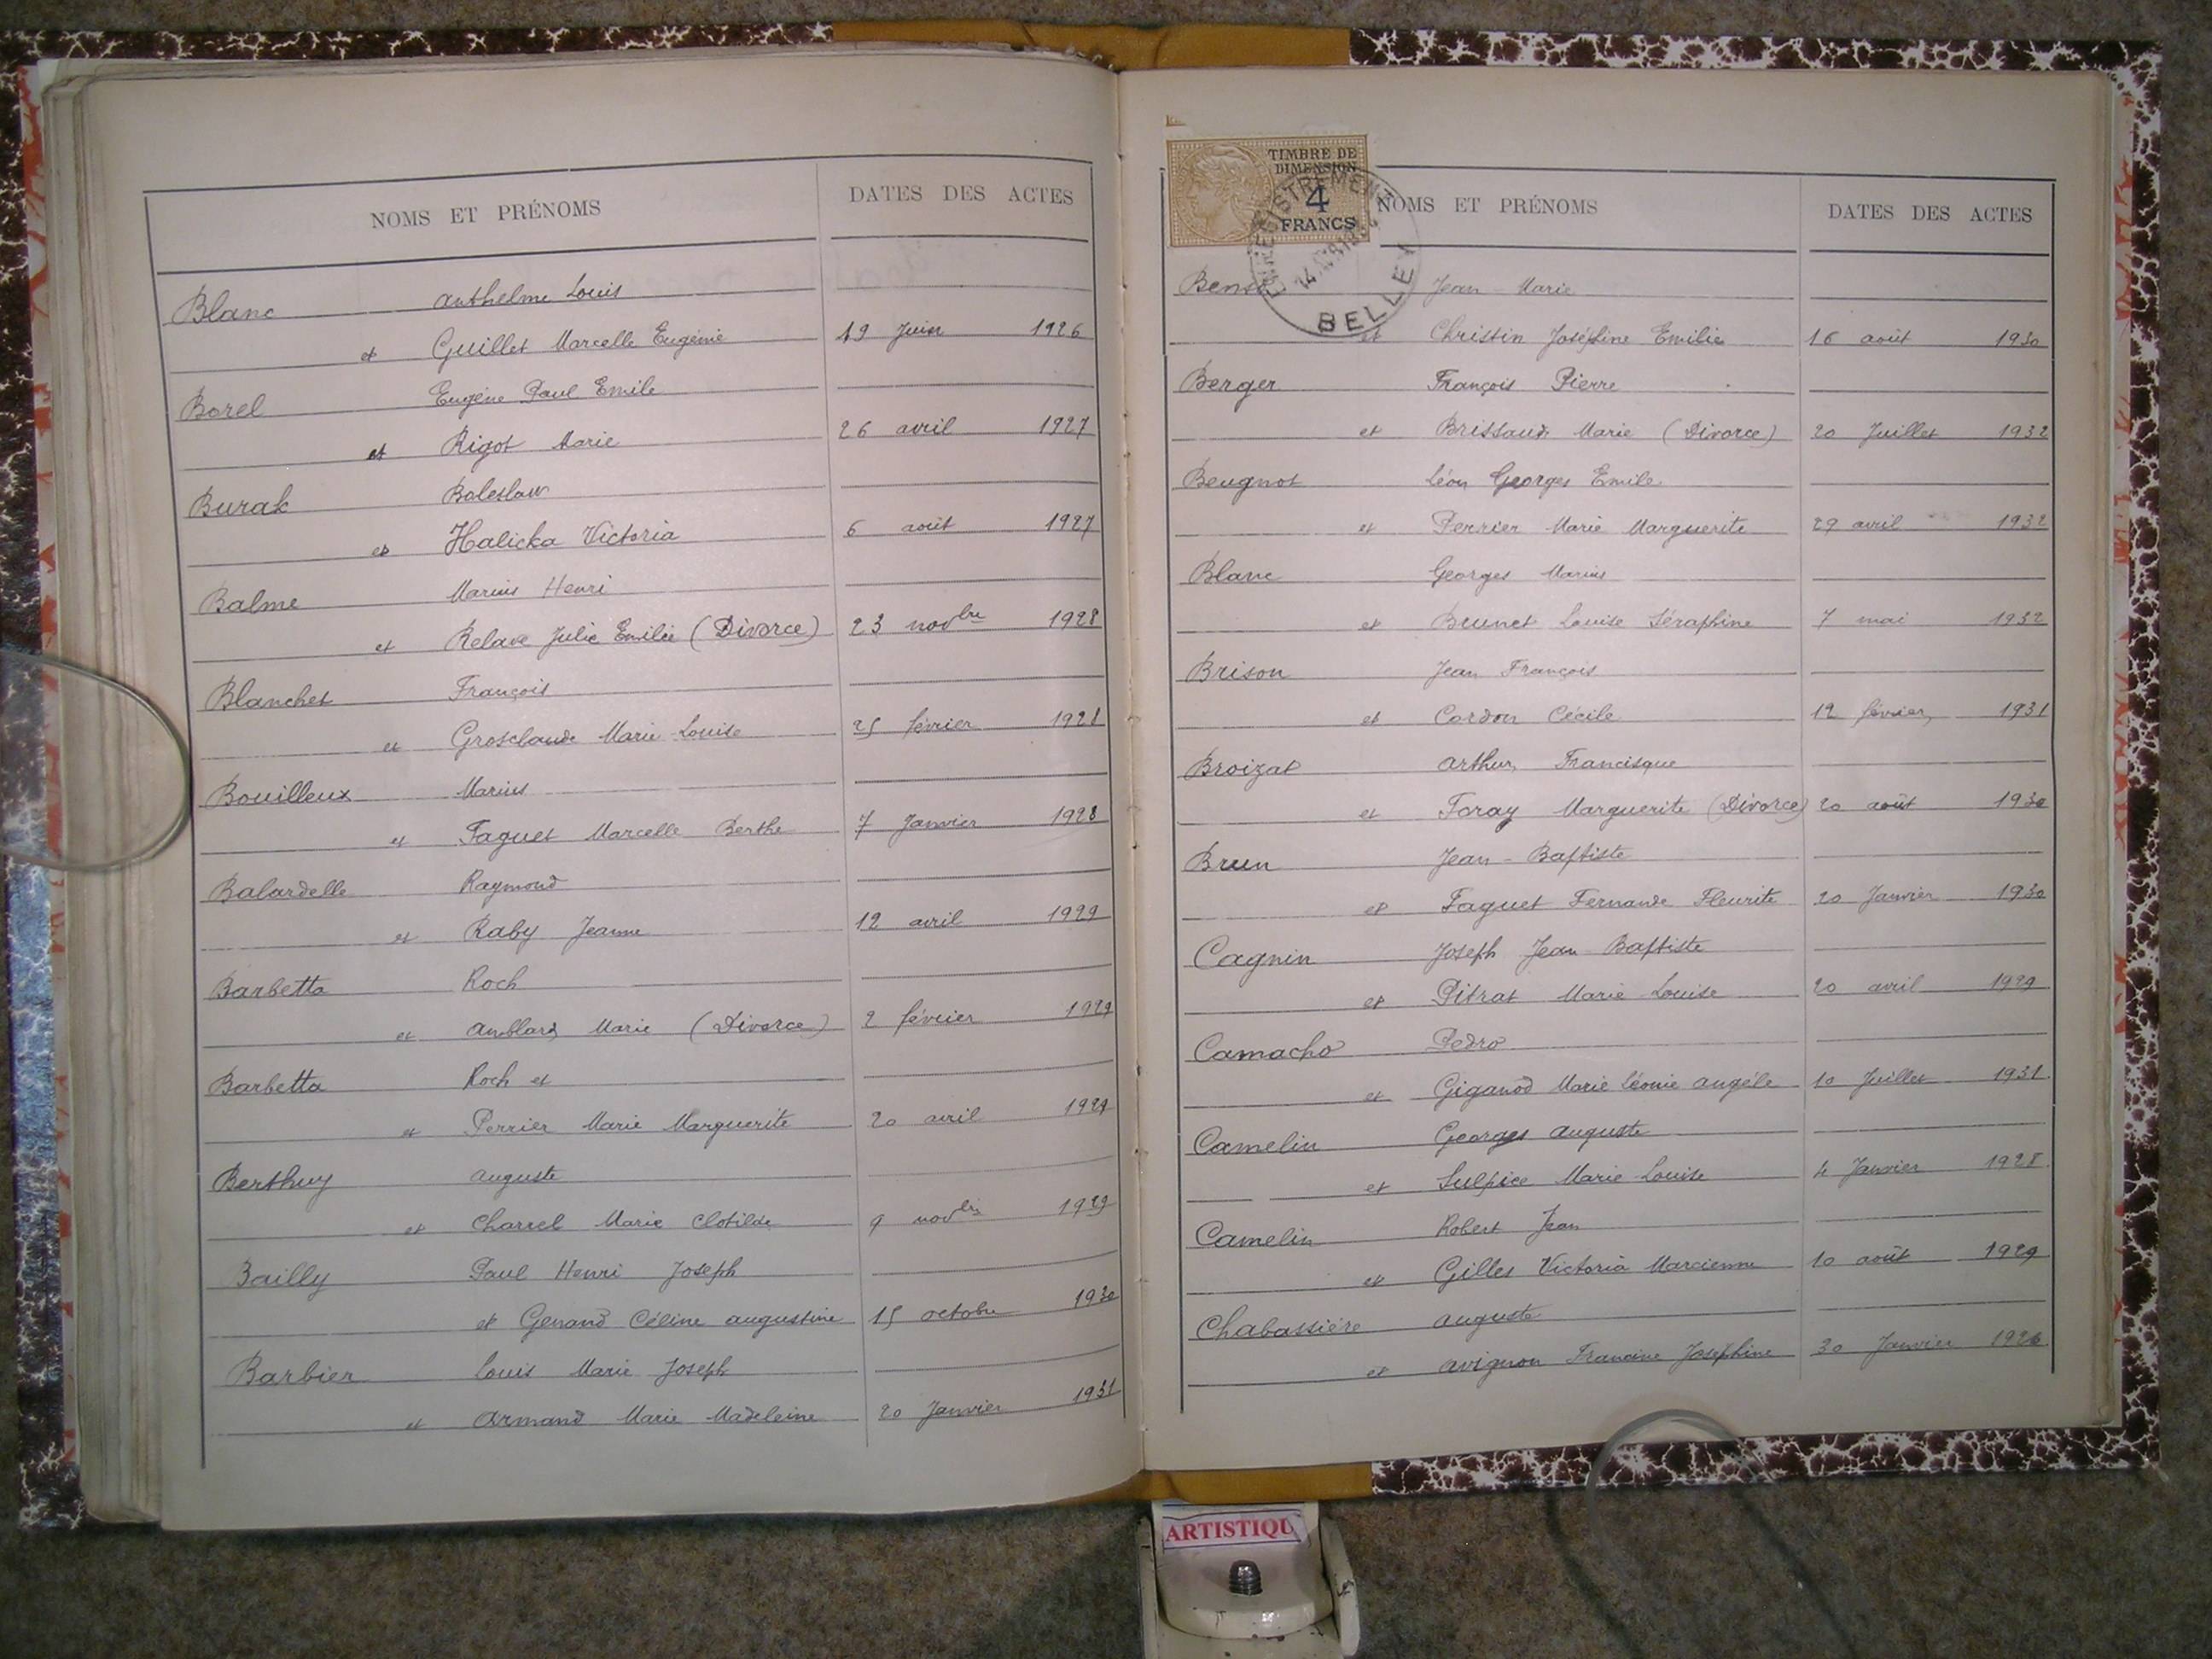 NOMS ET PRÉNOMS DATES DES ACTES
Blanc Anthelme Louis
et Guillet Marcelle Eugénie 19 Juin 1926
Borel Eugène Paul Emile
et Rigot Marie 26 avril 1927
Burak Boleslaw
et Halicka Victoria 6 août 1927
Balme Marius Henri
et Relave Julie Emilie (Divorce) 23 novbre 1928
Blanchet François
et Grosclaude Marie Louise 25 février 1928
Bouilleux Marius
et Faguet Marcelle Berthe 7 Janvier 1928
Balardelle Raymond
et Raby Jeanne 12 avril 1929
Barbetta Roch
et Amblard Marie (Divorce) 2 février 1929
Barbetta Roch et
et Perrier Marie Marguerite 20 avril 1929
Berthuy Auguste
et Charrel Marie Clotilde 9 novbre 1929
Bailly Paul Henri Joseph
et Genand Céline Augustine 15 octobre 1930
Barbier Louis Marie Joseph
et Armand Marie Madeleine 20 Janvier 1931
TIMBRE DE
DIMENSION
4
FRANCS
ENREGISTREMENT
BELLEY
NOMS ET PRÉNOMS DATES DES ACTES
Jean Marie
et Christin Joséphine Emilie 16 août 1930
Berger François Pierre
et Brissaud Marie (Divorce) 20 Juillet 1932
Beugnot Léon Georges Emile
et Perrier Marie Marguerite 29 avril 1932
Blanc Georges Marius
et Brunet Louise Séraphine 7 mai 1932
Brison Jean François
et Cordon Cécile 12 février 1931
Broizat Arthur Francisque
et Foray Marguerite (Divorce) 20 août 1930
Brun Jean-Baptiste
et Faguet Fernande Fleurite 20 Janvier 1930
Cagnin Joseph Jean Baptiste
et Pitrat Marie Louise 20 avril 1929
Camacho Pedro
et Giganod Marie Léonie Angèle 10 Juillet 1931
Camelin Georges Auguste
et Sulpice Marie Louise 4 Janvier 1928
Camelin Robert Jean
et Gilles Victoria Marcienne 10 août 1929
Chabassière Auguste
et Avignon Francine Joséphine 30 Janvier 1926
ARTISTIQU